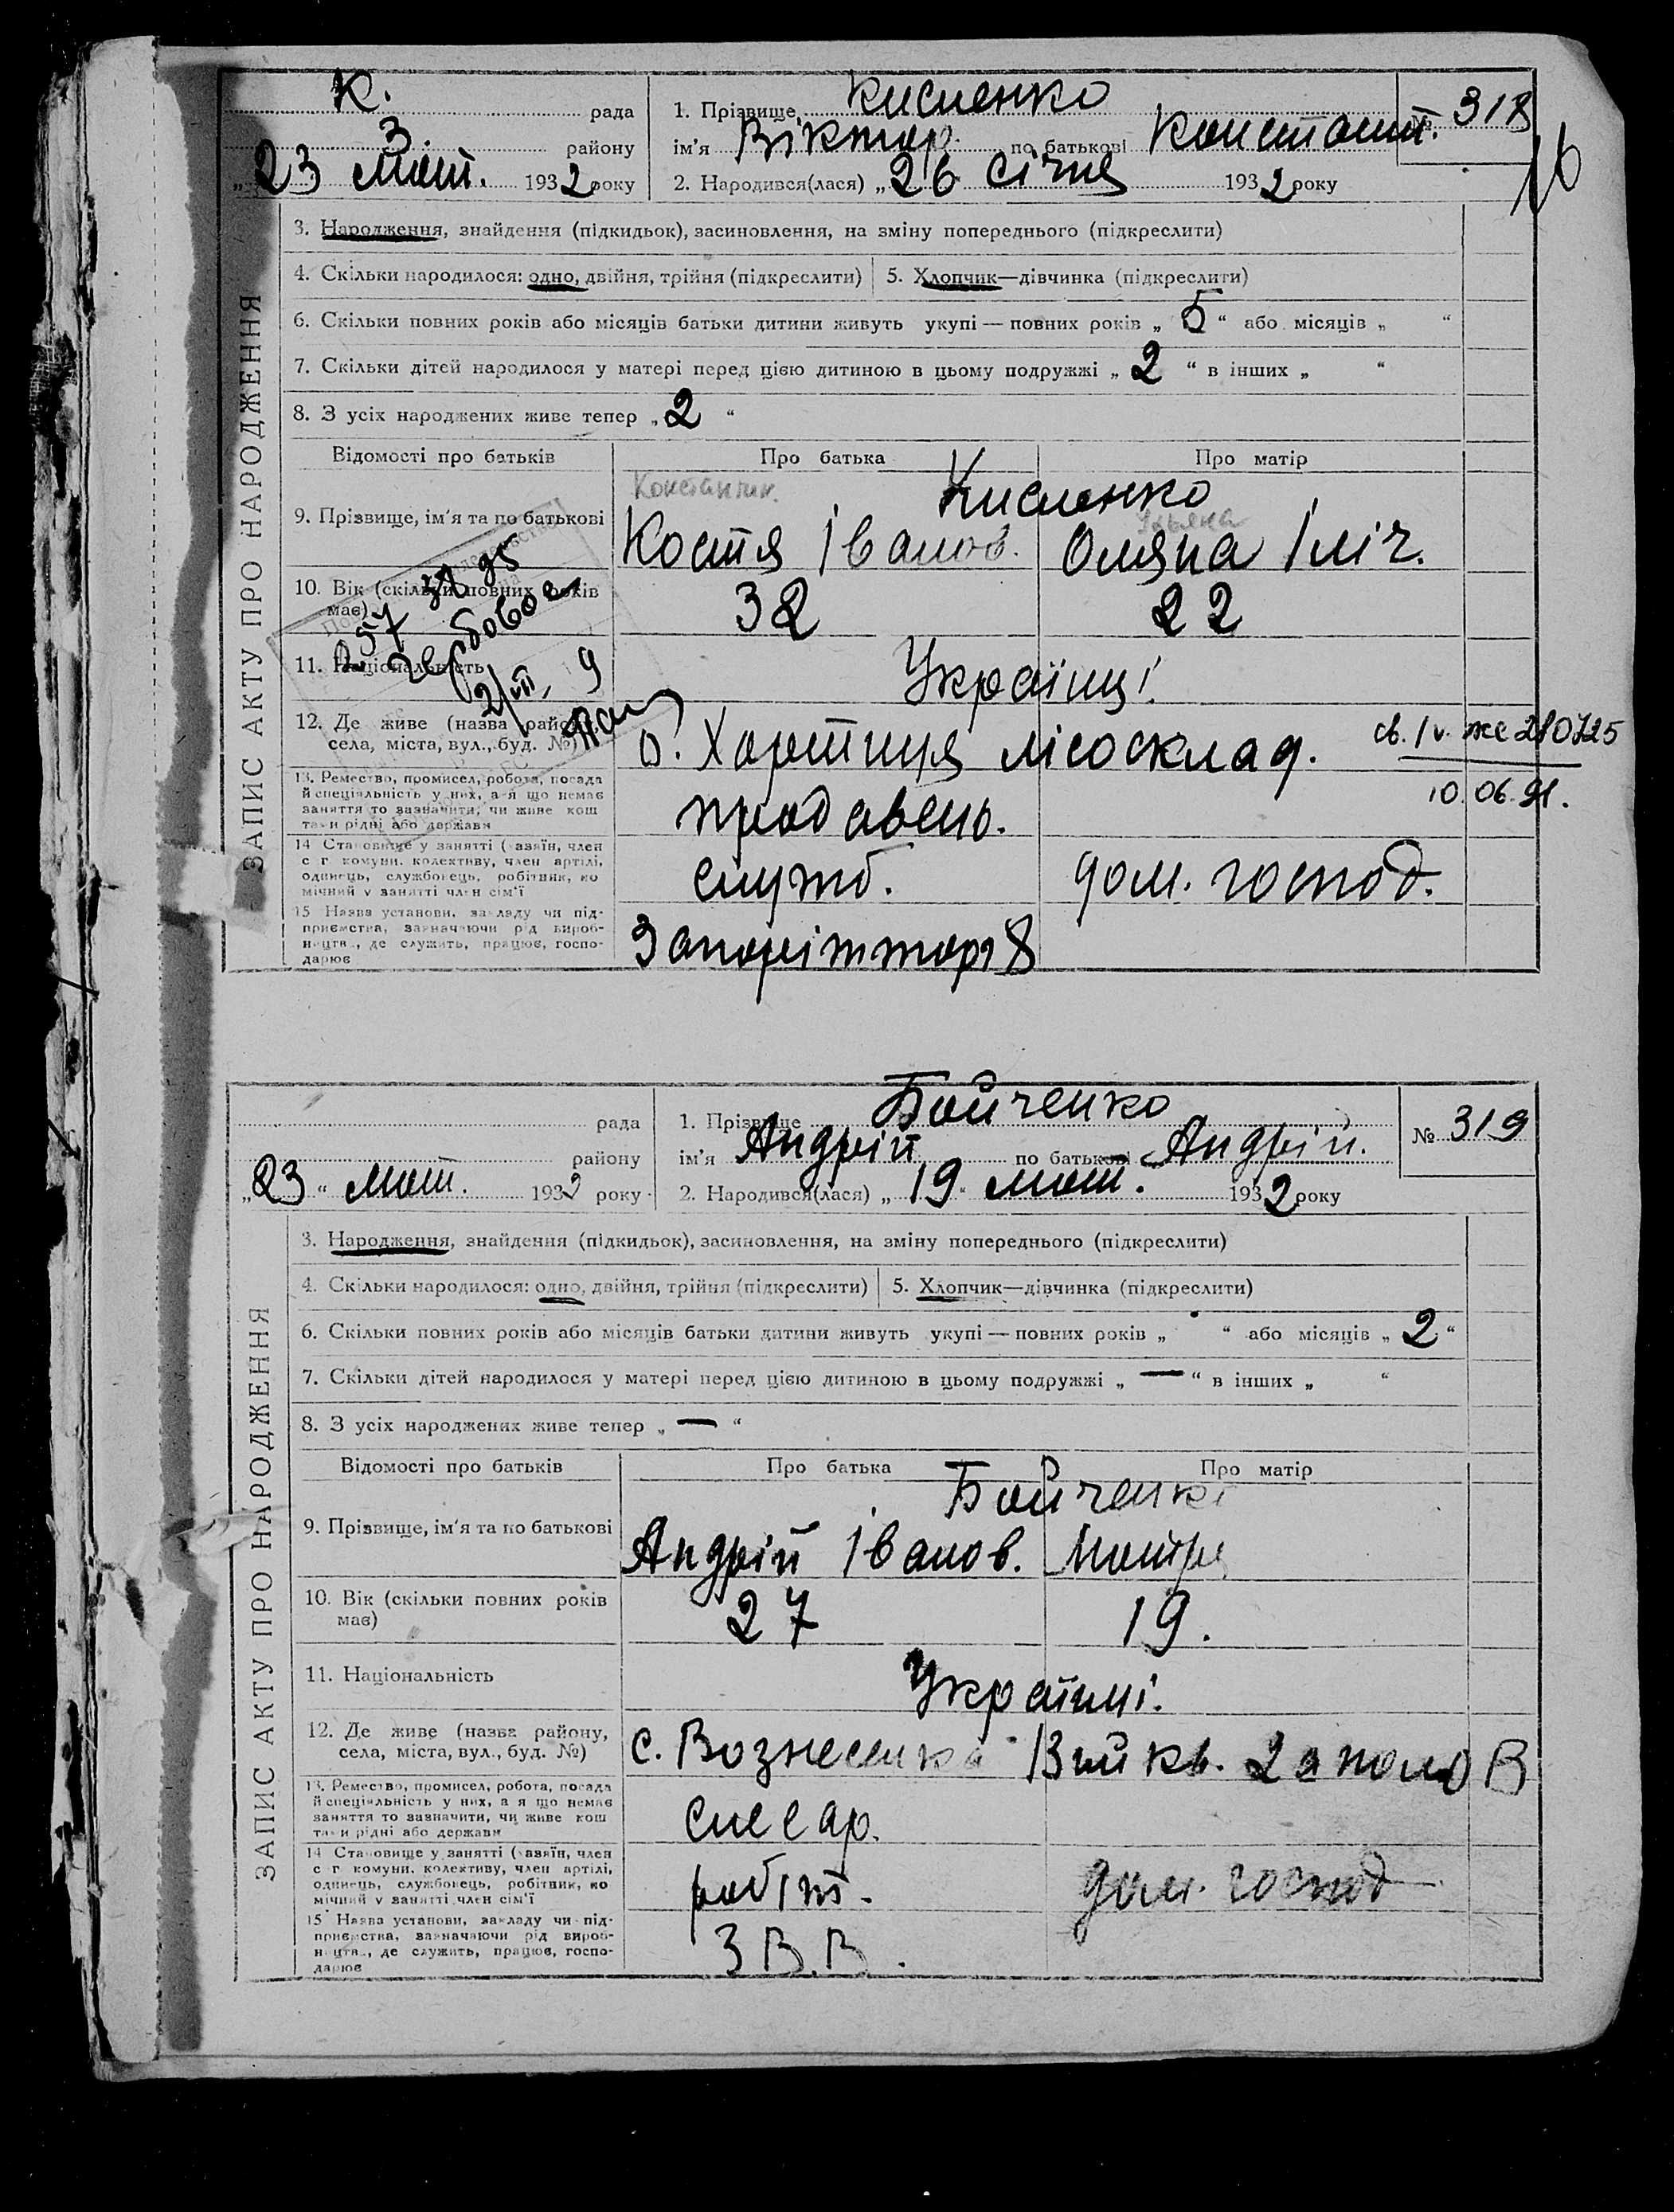 К. рада
З. району
„23 лют. 1932 року
1. Прізвище Кисленко
ім'я Віктор. по батькові Констант.
№ 318
2. Народився(лася) „26 січня 1932 року
16
ЗАПИС АКТУ ПРО НАРОДЖЕННЯ
3. Народження, знайдення (підкидьок), засиновлення, на зміну попереднього (підкреслити)
4. Скільки народилося: одно, двійня, трійня (підкреслити) 5. Хлопчик—дівчинка (підкреслити)
6. Скільки повних років або місяців батьки дитини живуть укупі — повних років „ 5 “ або місяців „ “
7. Скільки дітей народилося у матері перед цією дитиною в цьому подружжі „ 2 “ в інших „ “
8. З усіх народжених живе тепер „ 2 “
Відомості про батьків Про батька Про матір
Константин. Кисленко
9. Прізвище, ім'я та по батькові Костя Іванов. Оляна Іліч.
10. Вік (скільки повних років має) 32 22
11. Національність Українці.
12. Де живе (назва району, села, міста, вул., буд. №) о. Хортиця лісосклад.
св. IV. жс 280725
10.06.91.
13. Ремество, промисел, робота, посада
й спеціяльність у них, а я що немає
заняття то зазначити, чи живе кош
тами рідні або держави
продавець.
14 Становище у занятті (хазяїн, член
с г комуни, колективу, член артілі,
одинець, службовець, робітник, по
мічний у занятті член сім'ї
служб. дом. господ.
15 Назва установи, закладу чи під-
приємства, зазначаючи рід вироб-
ництва, де служить, працює, госпо-
дарює
Запоріжторг 8
рада
району
„23“ лют. 1932 року
1. Прізвище Бойченко
ім'я Андрій по батькові Андрій.
№ 319
2. Народився(лася) „ 19 “ лют. 1932 року
ЗАПИС АКТУ ПРО НАРОДЖЕННЯ
3. Народження, знайдення (підкидьок), засиновлення, на зміну попереднього (підкреслити)
4. Скільки народилося: одно, двійня, трійня (підкреслити) 5. Хлопчик—дівчинка (підкреслити)
6. Скільки повних років або місяців батьки дитини живуть укупі — повних років „ “ або місяців „ 2 “
7. Скільки дітей народилося у матері перед цією дитиною в цьому подружжі „ — “ в інших „ “
8. З усіх народжених живе тепер „ — “
Відомості про батьків Про батька Про матір
Бойченкі
9. Прізвище, ім'я та по батькові Андрій Іванов. Мотря
10. Вік (скільки повних років має) 27 19.
11. Національність Українці.
12. Де живе (назва району, села, міста, вул., буд. №) с. Вознесенка
13. Ремество, промисел, робота, посада
й спеціяльність у них, а я що немає
заняття то зазначити, чи живе кош
тами рідні або держави
слесар.
14 Становище у занятті (хазяїн, член
с г комуни, колективу, член артілі,
одинець, службовець, робітник, по
мічний у занятті член сім'ї
робітн. дом. господ
15 Назва установи, закладу чи під-
приємства, зазначаючи рід вироб-
ництва, де служить, працює, госпо-
дарює
З В. В.